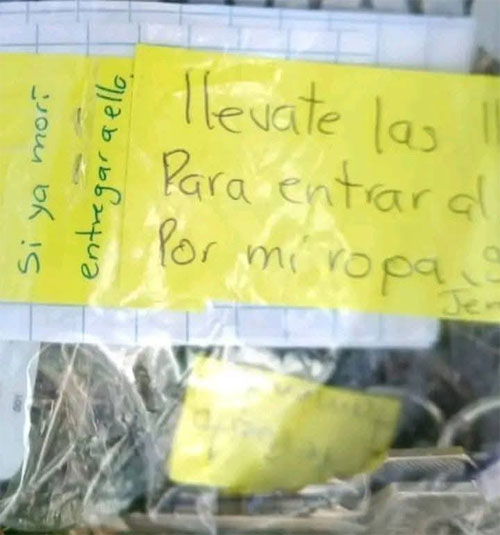 Si ya morí
entregar a ello,
llevate las
Para entrar al
Por mi ropa,